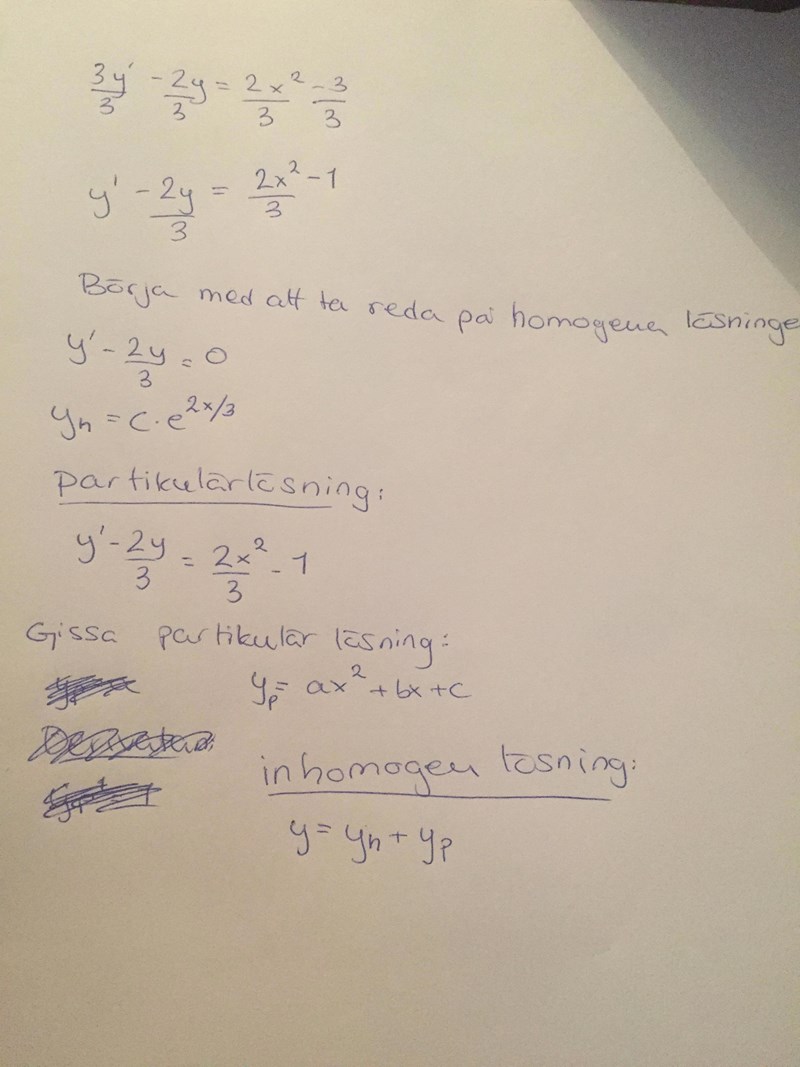 3y'/3 - 2y/3 = 2x²/3 - 3/3
y' - 2y/3 = 2x²/3 - 1
Börja med att ta reda på homogena lösninge
y' - 2y/3 = 0
yₕ = C · e^(2x/3)
partikulärlösning:
y' - 2y/3 = 2x²/3 - 1
Gissa partikulär lösning:
yₚ = ax² + bx + c
inhomogen lösning:
y = yₕ + yₚ